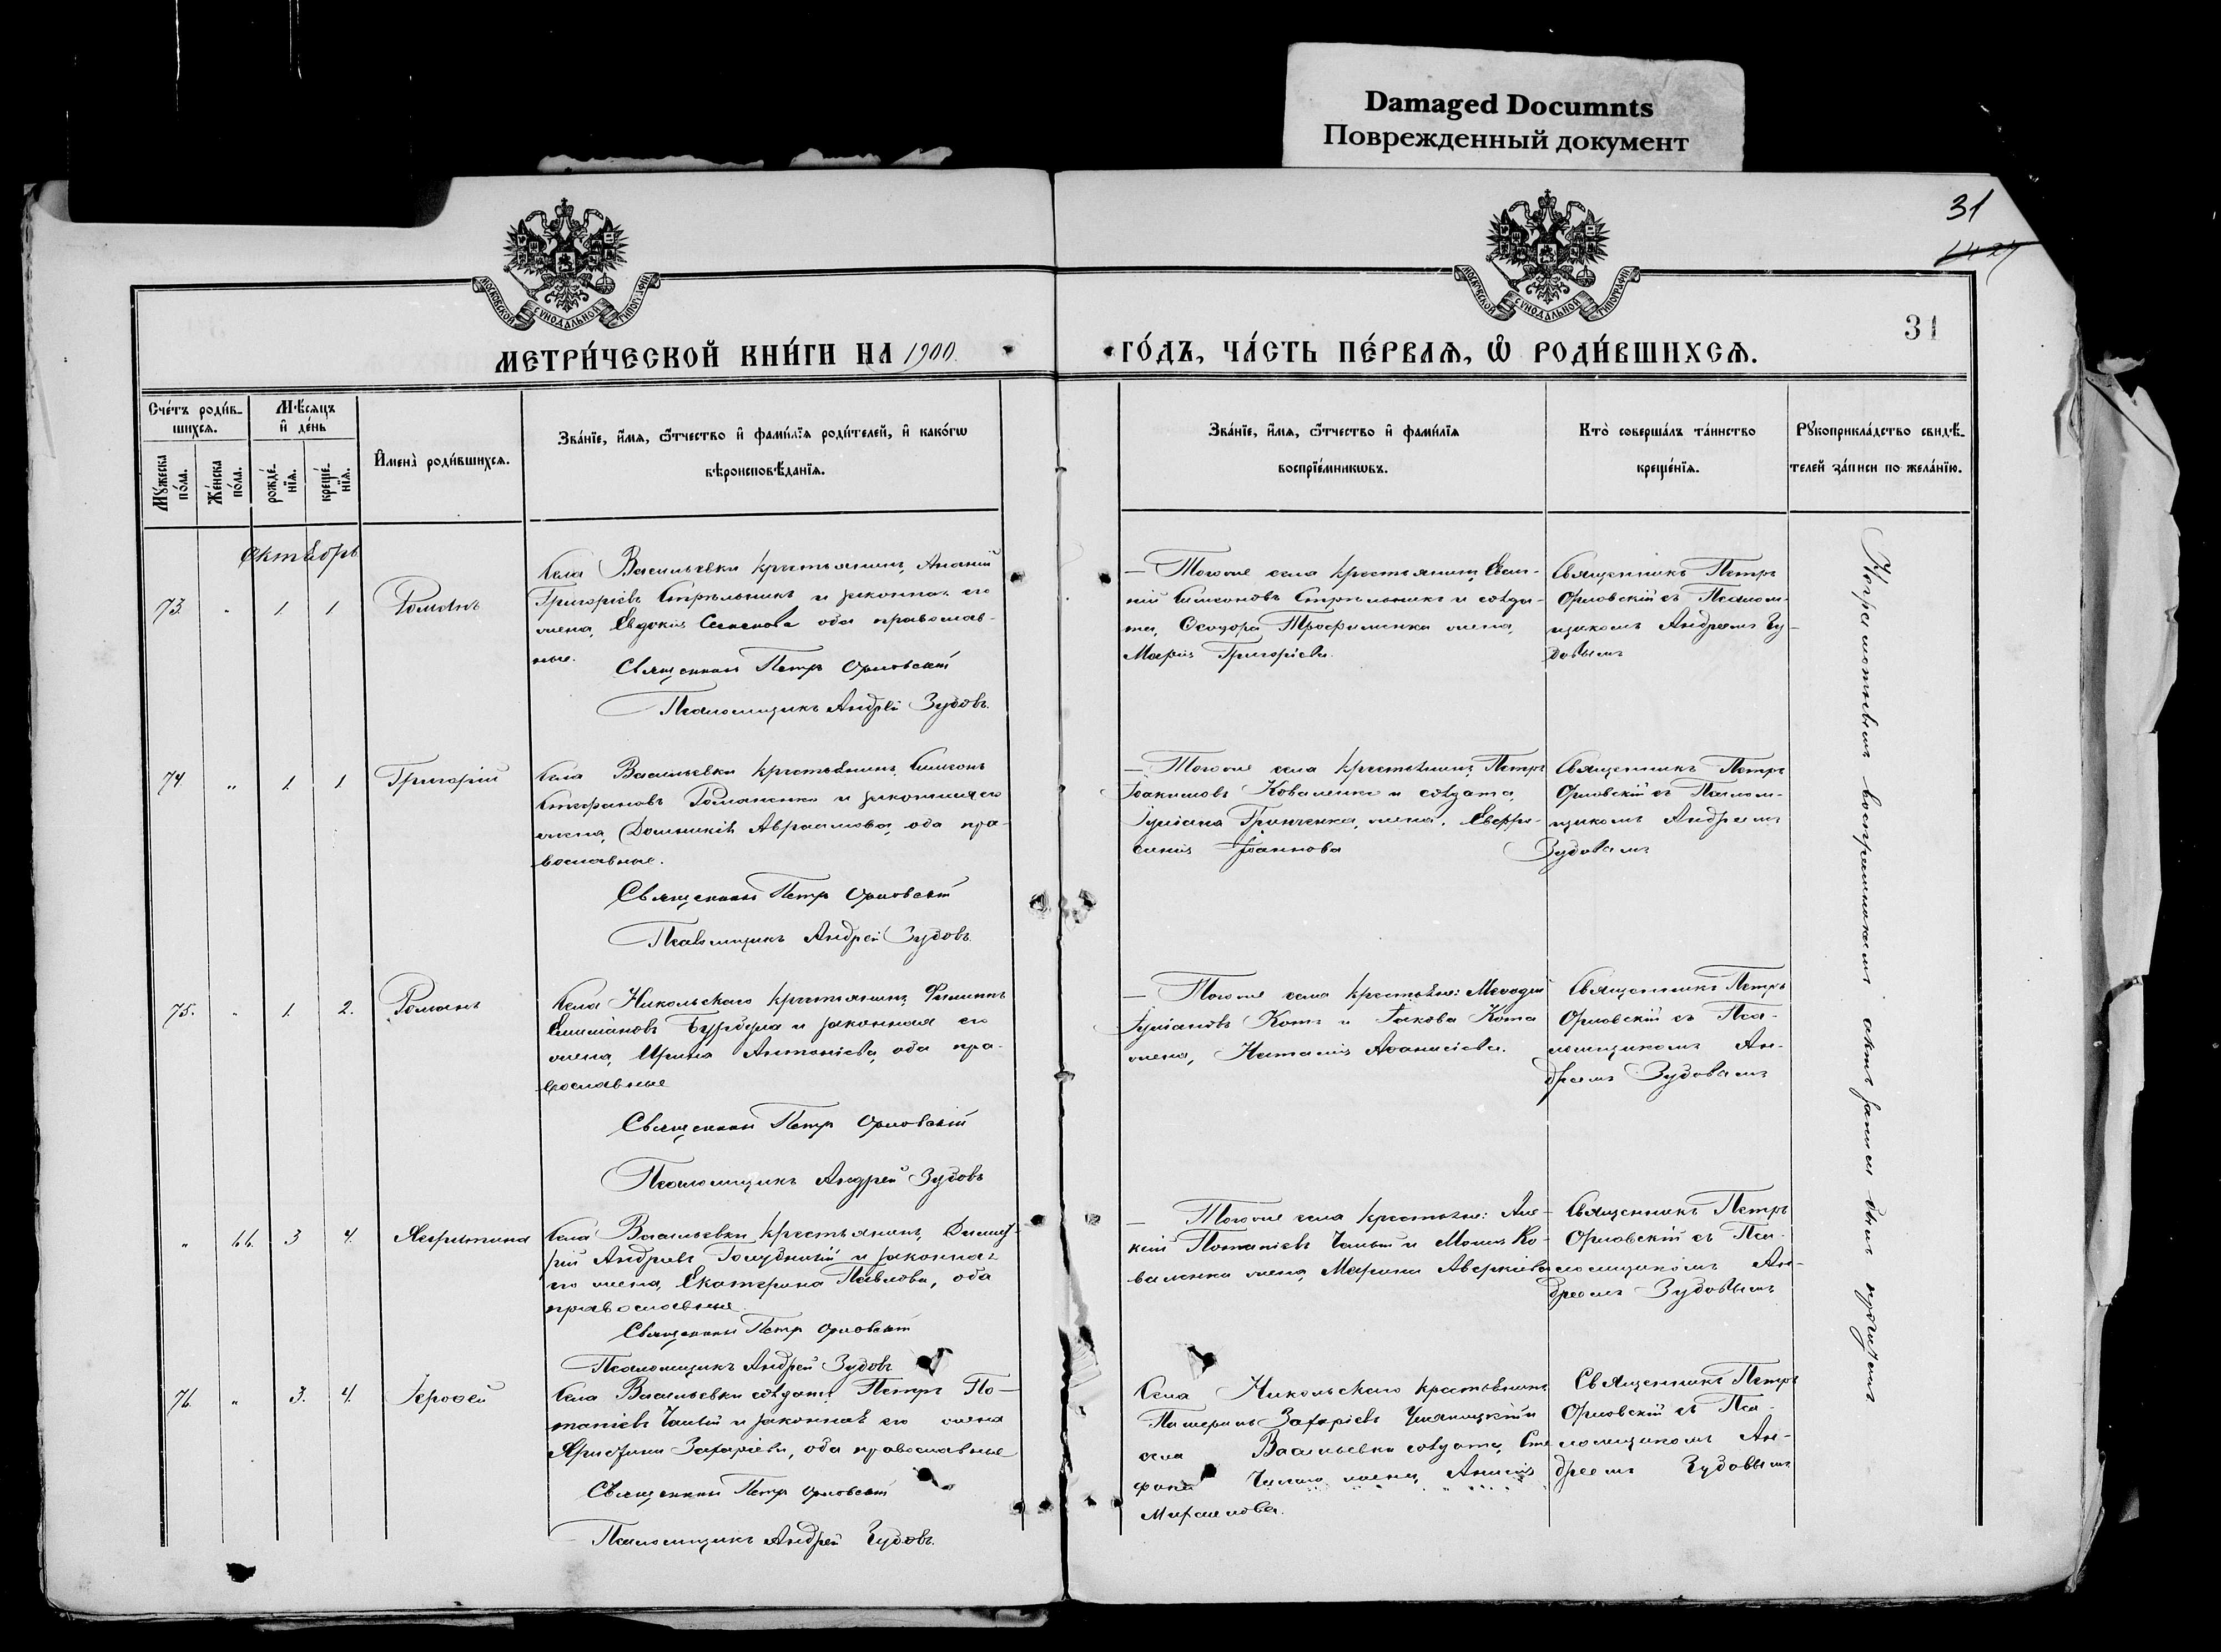 Damaged Documnts
Поврежденный документ
31
31
МОСКОВСКОЙ СУНОДАЛЬНОЙ ТИПОГРАФІИ
МОСКОВСКОЙ СУНОДАЛЬНОЙ ТИПОГРАФІИ
МЕТРИ́ЧЕСКОЙ КНИ́ГИ НА 1900
ГО́ДЪ, ЧА́СТЬ ПЕ́РВАѦ, Ѡ҆ РОДИ́ВШИХСѦ.
Сче́тъ роди́в-
шихсѧ.
Мꙋ́жеска
по́ла.
Же́нска
по́ла.
Мѣ́сѧцъ
и҆ де́нь
рожде́-
нїѧ.
креще́-
нїѧ.
И҆мена̀ роди́вшихсѧ.
Зва́нїе, и҆́мѧ, ѻ҆́тчество и҆ фами́лїѧ роди́телей, и҆ како́гѡ
вѣроисповѣ́данїѧ.
Зва́нїе, и҆́мѧ, ѻ҆́тчество и҆ фами́лїѧ
воспрїе́мникѡвъ.
Кто̀ соверша́лъ та́инство
креще́нїѧ.
Рꙋкоприкла́дство свидѣ́-
телей за́писи по жела́нїю.
Октябрь
73. " 1 1 Романъ
Села Васильевки крестьянинъ, Ананій
Григоріевъ Стрѣльникъ и законная его
жена, Евдокія Семенова оба православ-
ные.
Священникъ Петръ Орловскій
Псаломщикъ Андрей Зудовъ.
— Тогоже села крестьянинъ,
Симеоновъ Стрѣльникъ и солда-
та, Ѳеодора Трофименка жена,
Марія Григоріева.
Священникъ Петръ
Орловскій съ Псалом-
щикомъ Андреемъ Зу-
довымъ
74. " 1. 1 Григорій
Села Васильевки крестьянинъ, Симеонъ
Стефановъ Романенко и законная его
жена, Домникія Авраамова, оба пра-
вославные.
Священникъ Петръ Орловскій
Псаломщикъ Андрей Зудовъ.
— Тогоже села крестьянинъ, Петръ
Іоакимовъ Коваленко и солдата,
Іуліана Гринченка, жена, Евфро-
синія Іоаннова
Священникъ Петръ
Орловскій съ Псалом-
щикомъ Андреемъ
Зудовымъ
75. " 1. 2. Романъ
Села Никольскаго крестьянинъ, Филиппъ
Бурдула и законная его
жена, Ирина Антоніева, оба пра-
вославные
Священникъ Петръ Орловскій
Псаломщикъ Андрей Зудовъ
— Тогоже села крестьяне: Меѳодій
Іуліановъ Котъ и Іакова Кота
жена, Наталія Аѳанасіева.
Священникъ Петръ
Орловскій съ Пса-
ломщикомъ Ан-
дреемъ Зудовымъ
" 66. 3 4.
Села Васильевки крестьянинъ, Димит-
рій Андреевъ Голубничій и законная
его жена, Екатерина Павлова, оба
православные.
Священникъ Петръ Орловскій
Псаломщикъ Андрей Зудовъ
— Тогоже села крестьяне: Але-
ксій Потапіевъ Чалый и Ко-
валенка жена, Марина Аверкіева
Священникъ Петръ
Орловскій съ Пса-
ломщикомъ Ан-
дреемъ Зудовымъ
76. " 3. 4. Іероѳей
Села Васильевки солдатъ, Петръ По-
тапіевъ Чалый и законная его жена
Захаріева, оба православные
Священникъ Петръ Орловскій
Псаломщикъ Андрей Зудовъ.
Села Никольскаго крестьянинъ
Захаріевъ
села Васильевки солдата, Сте-
фана Чалаго жена, Анисія
Священникъ Петръ
Орловскій съ Пса-
ломщикомъ Ан-
дреемъ Зудовымъ
Неграмотнымъ воспріемникамъ актъ записи былъ прочитанъ